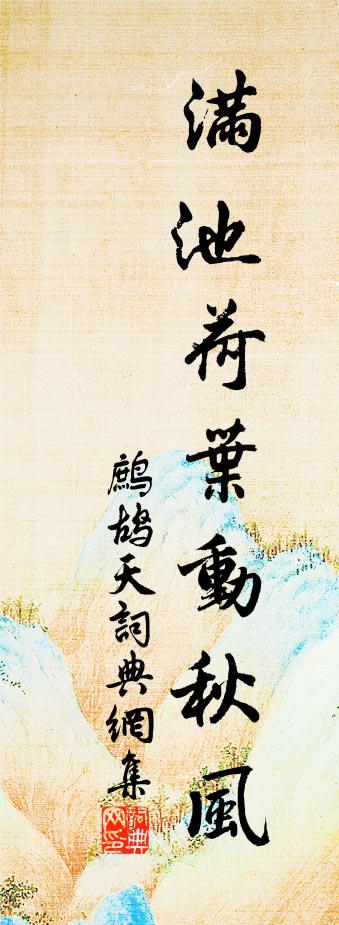 滿池荷葉動秋風
鷓鴣天詞典網集
詞典
网印